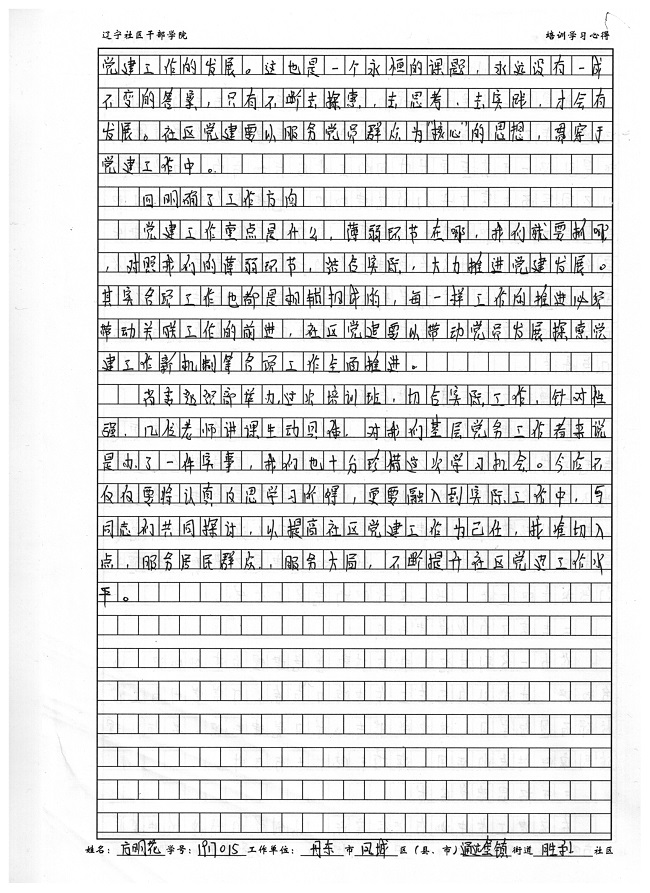 辽宁社区干部学院 培训学习心得
党建工作的发展。这也是一个永恒的课题，永远没有一成
不变的答案，只有不断去探索，去思考，去实践，才会有
发展。社区党建要以服务党员群众为“核心”的思想，贯穿于
党建工作中。
四明确了工作方向
党建工作重点是什么，薄弱环节在哪，我们就要抓哪
，对照我们的薄弱环节，结合实际，大力推进党建发展。
其实各项工作也都是相辅相成的，每一样工作的推进必须
带动关联工作的前进，社区党建要以带动党员发展探索党
建工作新机制等各项工作全面推进。
省委组织部举办这次培训班，切合实际工作，针对性
强，几位老师讲课生动具体，对我们基层党务工作者来说
是办了一件实事，我们也十分珍惜这次学习机会。今后不
仅仅要将认真反思学习所得，更要融入到实际工作中，与
同志们共同探讨，以提高社区党建工作为己任，找准切入
点，服务居民群众，服务大局，不断提升社区党建工作水
平。
姓名：方明花 学号：1917015 工作单位：丹东 市 凤城 区（县、市） 通远堡镇 街道 胜利 社区